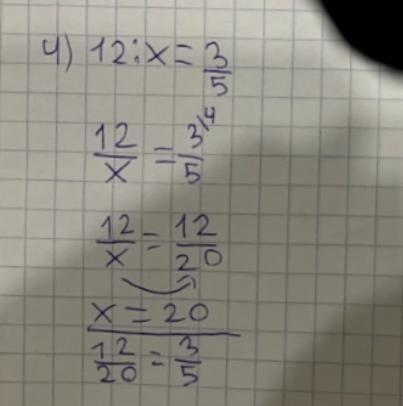 4) 12:x = 3/5
12/x = 3\4/5
12/x = 12/20
x = 20
12/20 = 3/5